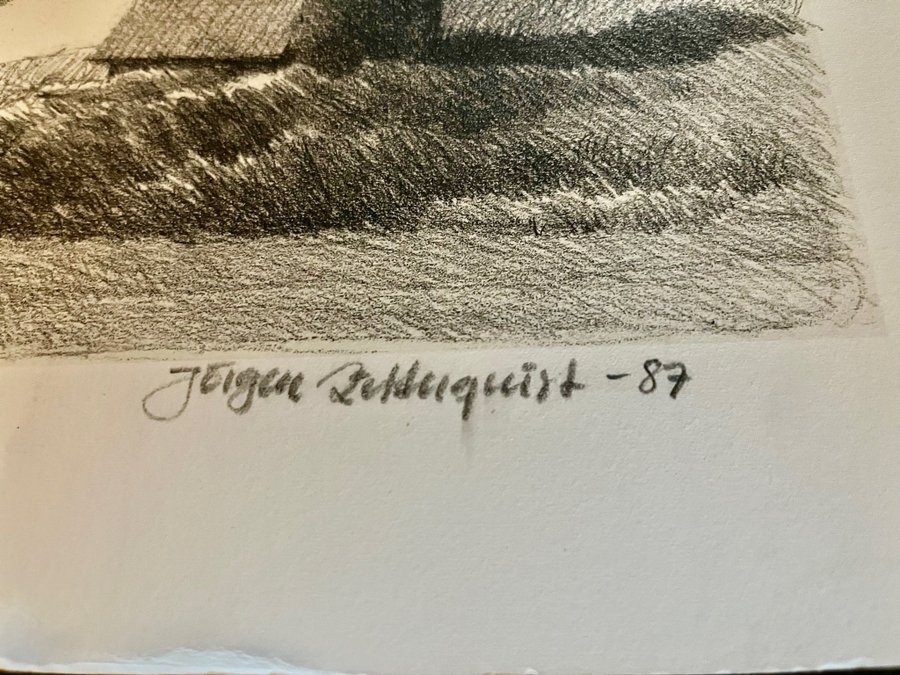 Jörgen Zetterquist -87